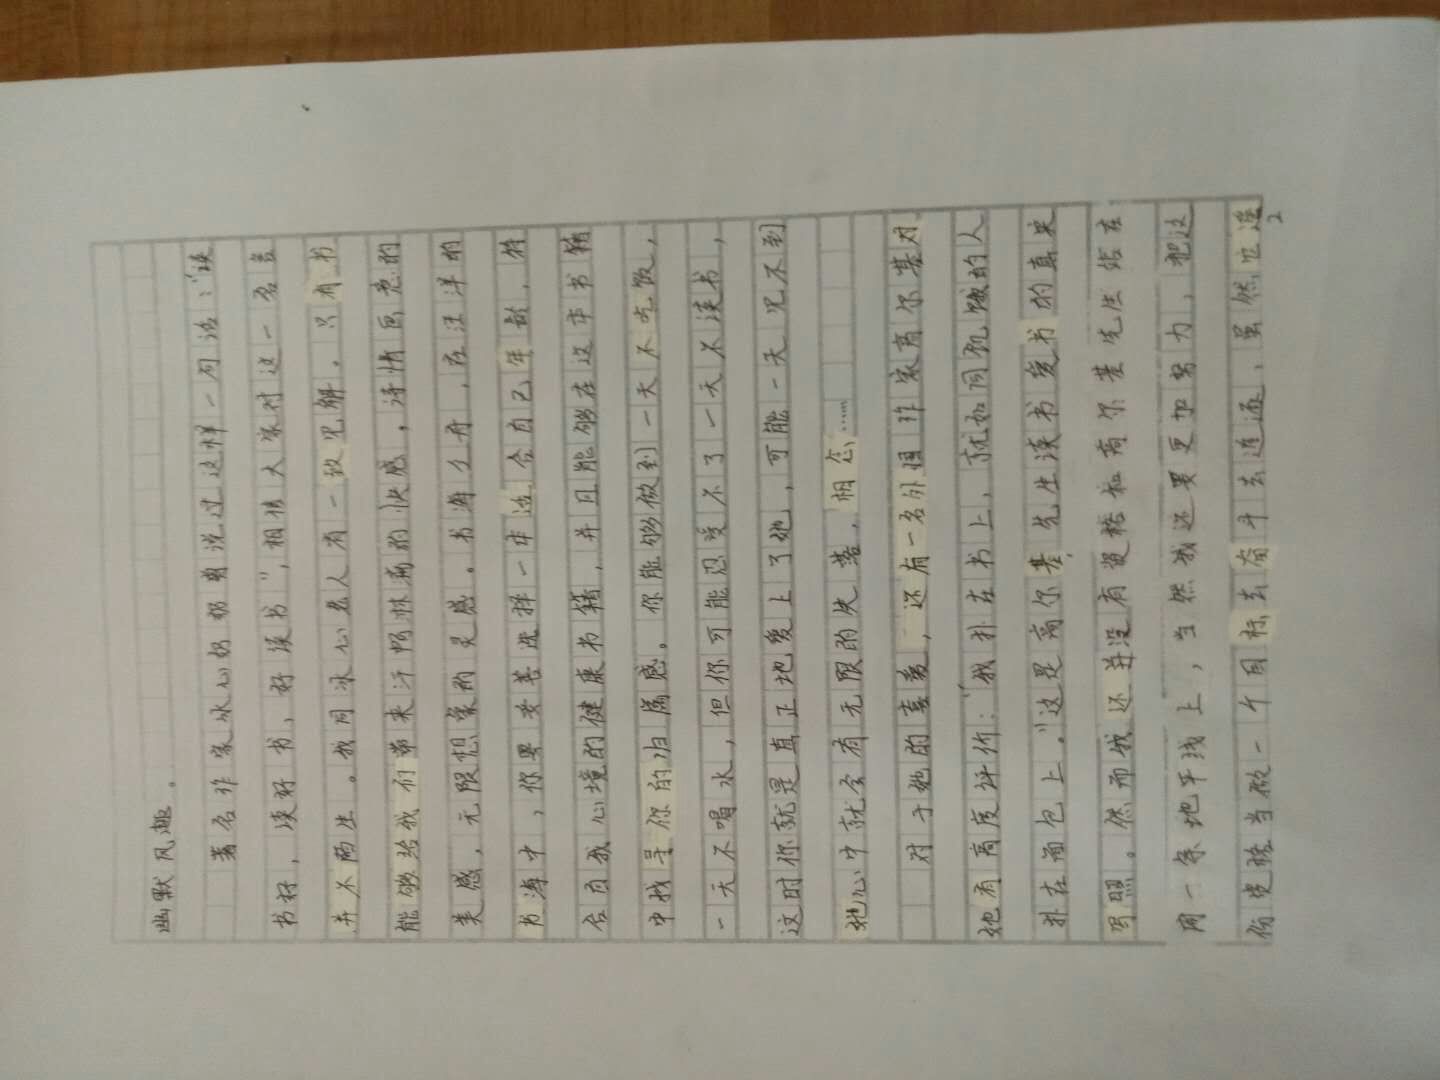 幽默风趣。
著名作家冰心奶奶曾说过这样一句话：“读
书好，读好书，好读书”，相信大家对这一名言
并不陌生。我同冰心名人有一致见解。只有书
能够给我们带来汗畅淋漓的快感，诗情画意的
美感，无限想象的灵感。书海小舟，在汪洋的
书海中，你要妥善选择一本适合自己年龄，符
合自我心境的健康书籍，并且能够在这本书籍
中找寻你的归属感。你能够做到一天不吃饭，
一天不喝水，但你可能忍受不了一天不读书，
这时你就是真正地爱上了她，可能一天见不到
她心中就会有无限的失落，相念……
对于她的喜爱，还有一名外国作家高尔基对
她有高度评价：“我扑在书上，就如同饥饿的人
扑在面包上。”这是高尔基先生读书爱书的真实
写照。然而我还并没有资格和高尔基先生站在
同一条地平线上，当然我还要更加努力，把这
份资格当做一个目标去奋斗去追逐，虽然它遥
2